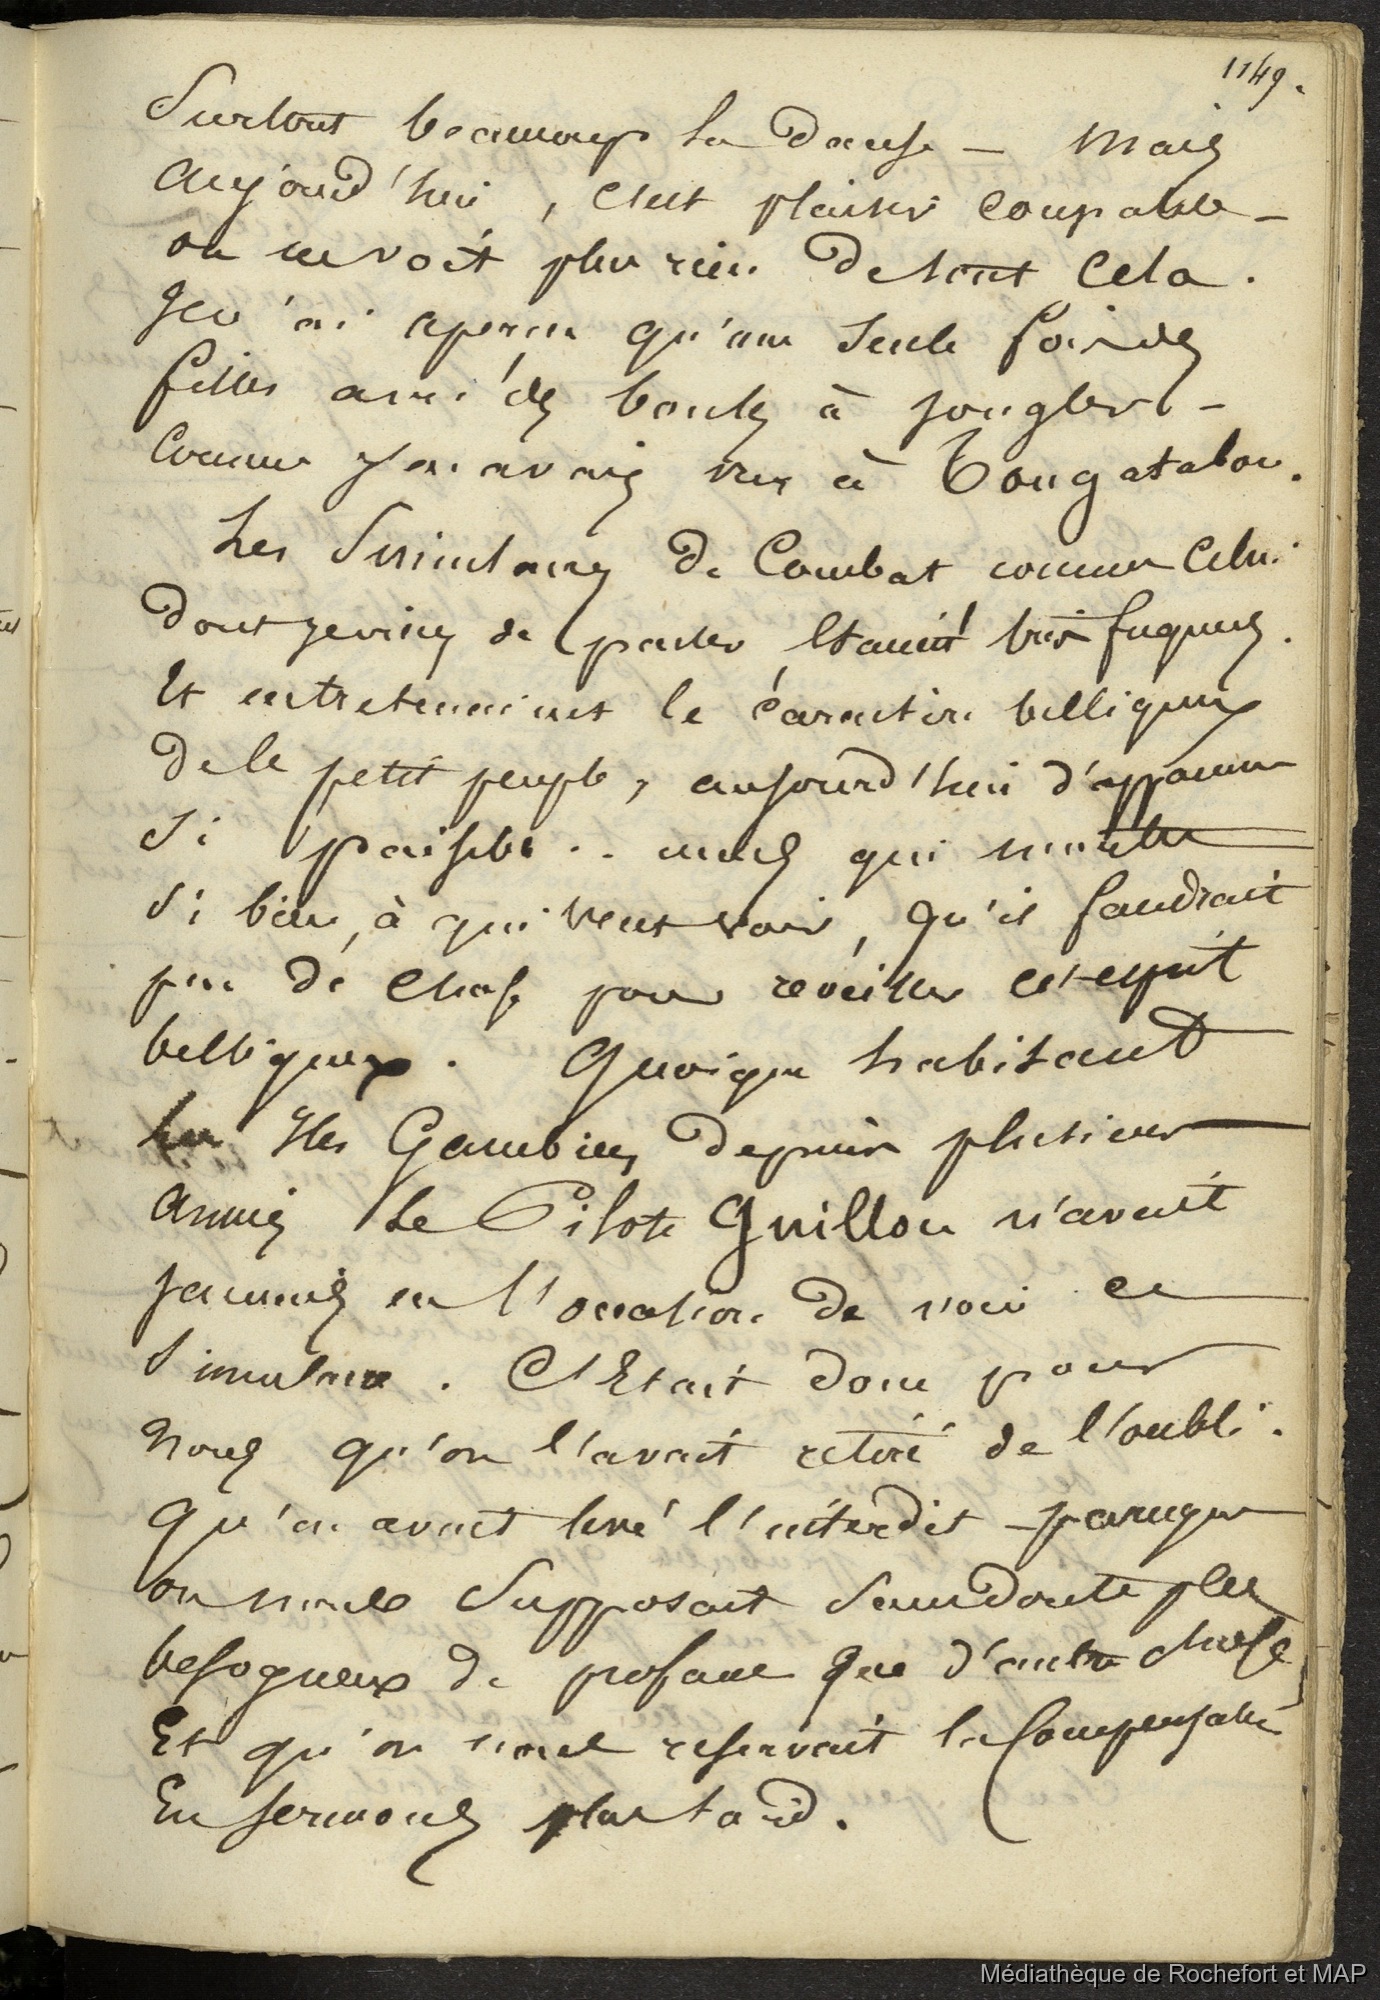 1149.
Surtout beaucoup la danse — Mais
Aujourd'hui, c'est plaisir coupable —
on ne voit plus rien de tout cela.
Je n'ai aperçu qu'une seule fois des
filles avec des boules à jongler —
Comme j'en avais vu à Tongatabou.
Les Simulacres de Combat comme celui
dont je viens de parler étaient très fréquens.
Et entretenaient le caractère belliqueux
de ce petit peuple, aujourd'hui d'apparence
si paisible .. mais qui montre
si bien, à qui veut voir, qu'il faudrait
peu de chose pour réveiller cet esprit
belliqueux. Quoique habitant
les Iles Gambier depuis plusieurs
Années Le Pilote Guillou n'avait
jamais eu l'occasion de voir ce
Simulacre. C'Etait donc pour
nous qu'on l'avait retiré de l'oubli.
Qu'on avait levé l'interdit — parceque
on nous supposait sans doute plus
besogneux de profane que d'autre chose
Et qu'on nous reservait la Compensation
En sermons plus tard.
Médiathèque de Rochefort et MAP